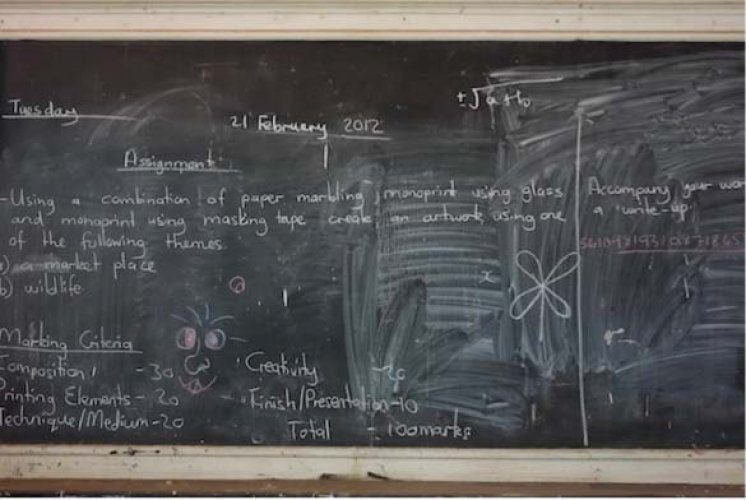 Tuesday
21 February 2012
Assignment
-Using a combination of paper marbling, monoprint using glass
and monoprint using masking tape create an artwork using one
of the following themes
a) a market place
b) wildlife
Marking Criteria
Composition - 30
Printing Elements - 20
Technique/Medium - 20
Creativity - 20
- Finish/Presentation - 10
Total - 100 marks
x
Accompany your
a "write-up"